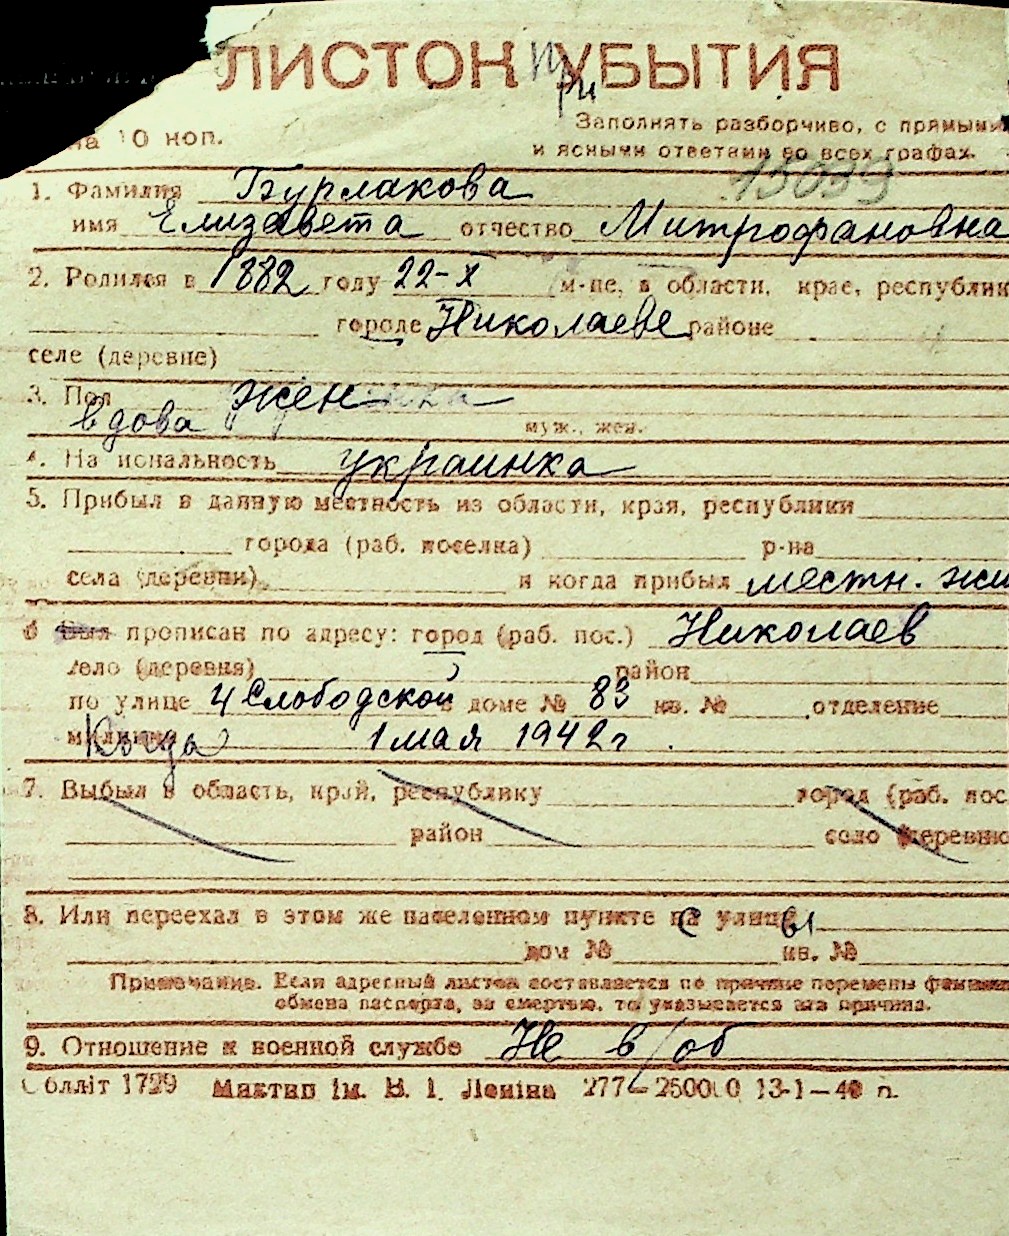 ЛИСТОК при УБЫТИЯ
на 10 коп.
Заполнять разборчиво, с прямыми
и ясными ответами во всех графах.
15039
1. Фамилия Бурлакова
имя Елизавета отчество Митрофановна
2. Родился в 1882 году 22-X м-це, в области, крае, республик
городе Николаеве районе
селе (деревне)
3. Пол жен
вдова муж., жен.
4. На иональность украинка
5. Прибыл в данную местность из области, края, республики
города (раб. поселка) р-на
села (деревни) и когда прибыл местн. жи
6 Был прописан по адресу: город (раб. пос.) Николаев
село (деревня) район
по улице 4 Слободской в доме № 83 кв. № отделение
милиции Когда 1 мая 1942 г.
7. Выбыл в область, край, республику город (раб. пос.
район село (деревню
8. Или переехал в этом же населенном пункте на с улицы
дом № кв. №
Примечание. Если адресный листок составляется по причине перемены фамили
обмена паспорта, за смертью, то указывается эта причина.
9. Отношение к военной службе Не в/об
Обллiт 1729 Миктип iм. В. I. Ленiна 277—250000 13-1—40 п.